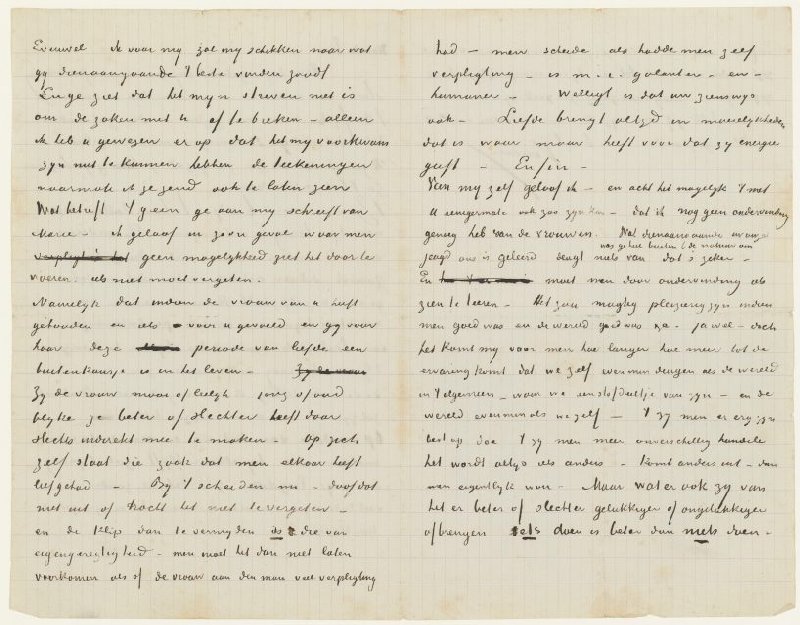 Evenwel ik voor mij zal my schikken naar wat
gy dienaangaande 't beste vinden zoudt
Enige ziet dat het mijn streven niet is
om de zaken met U af te breken – alleen
ik heb U gewezen er op dat het my voorkwam
zyn nut te kunnen hebben de teekeningen
naarmate ik ze zend ook te laten zien
Wat betreft 't geen ge aan my schreeft van
Marie – ik geloof in zoo'n geval waar men
geen mogelykheid ziet het door te
voeren iets niet moet vergeten.
Namelyk dat indien de vrouw van U heeft
gehouden en iets voor U gevoeld en gy voor
haar deze periode van liefde een
buitenkansje is in het leven –
Zy de vrouw mooi of leelyk jong of oud
blyke ze beter of slechter heeft daar
slechts indirekt mee te maken – Op zich
zelf staat die zaak dat men elkaar heeft
liefgehad – By 't scheiden nu – doof dat
niet uit of tracht het niet te vergeten –
en de klip dan te vermyden is die van
eigengeregtigheid – men moet het dan niet laten
voorkomen als of de vrouw aan den man veel verpligting
had – men scheide als hadde men zelf
verpligting – is m.i. galanter – en –
humaner – Welligt is dat uw zienswys
ook – Liefde brengt altyd in moeielykheden
dat is waar maar heeft voor dat zy energie
geeft – Enfin –
Van my zelf geloof ik – en acht het mogelyk 't met
U eenigermate ook zoo zyn kan – dat ik nog geen ondervinding
genoeg heb van de vrouwen. Wat dienaangaande in onze
was geheel buiten de natuur om
jeugd ons is geleerd deugt niets van dat's zeker –
En moet men door ondervinding iets
zien te leeren – Het zou magtig pleizierig zyn indien
men goed was en de wereld goed was &a – jawel – doch
het komt my voor men hoe langer hoe meer tot de
ervaring komt dat we zelf evenmin deugen als de wereld
in 't algemeen – waar we een stofdeeltje van zyn – en de
wereld evenmin als we zelf – 't zy men er erg zyn
best op doe 't zy men meer onverschillig handele
het wordt altyd iets anders – komt anders uit – dan
men eigentlyk wou – Maar wat er ook zy van
het er beter of slechter gelukkiger of ongelukkiger
afbrengen iets doen is beter dan niets doen –